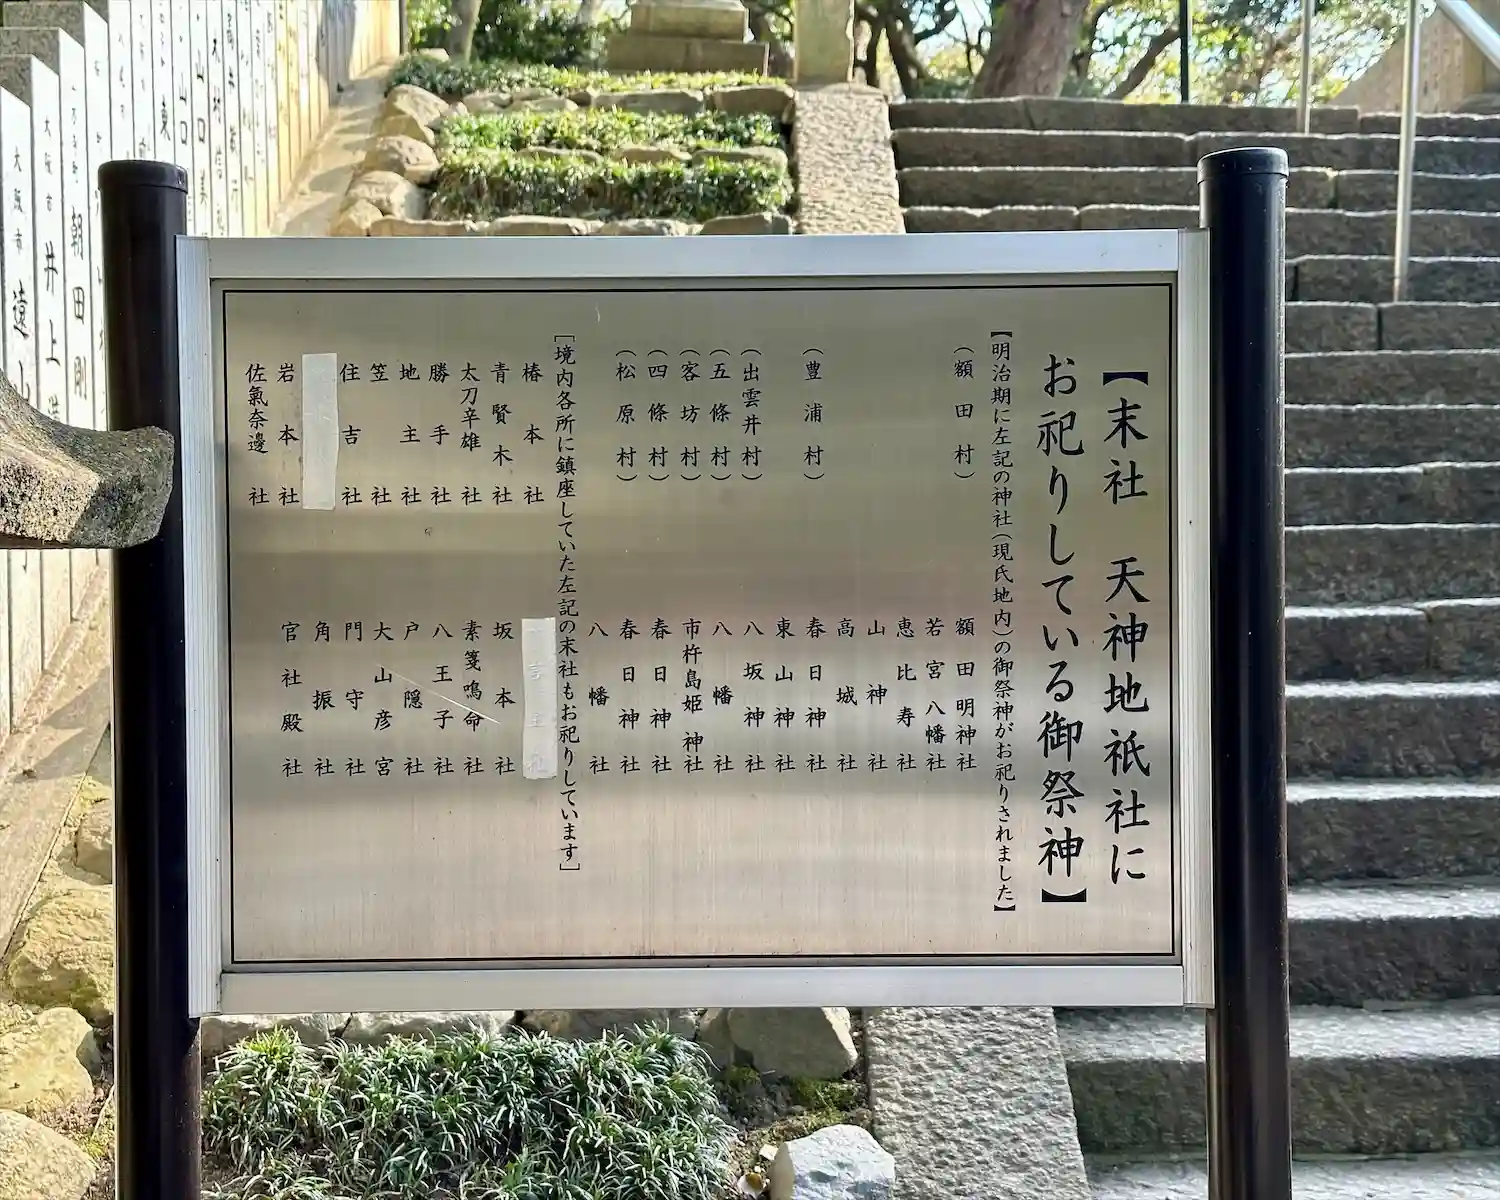 【末社 天神地祇社に
お祀りしている御祭神】
【明治期に左記の神社(現氏地内)の御祭神がお祀りされました】
(額田村) 額田明神社
若宮八幡社
恵比寿社
山神社
高城社
(豊浦村) 春日神社
東山神社
(出雲井村) 八坂神社
(五條村) 八幡社
(客坊村) 市杵島姫神社
(四條村) 春日神社
(松原村) 春日神社
八幡社
[境内各所に鎮座していた左記の末社もお祀りしています]
椿本社
青賢木社
太刀辛雄社
勝手社
地主社
笠社
住吉社
岩本社
佐氣奈邊社
言主社
坂本社
素箋鳴命社
八王子社
戸隠社
大山彦宮
門守社
角振社
官社殿社
朝田剛
井上
大阪市 遠山
山口
東